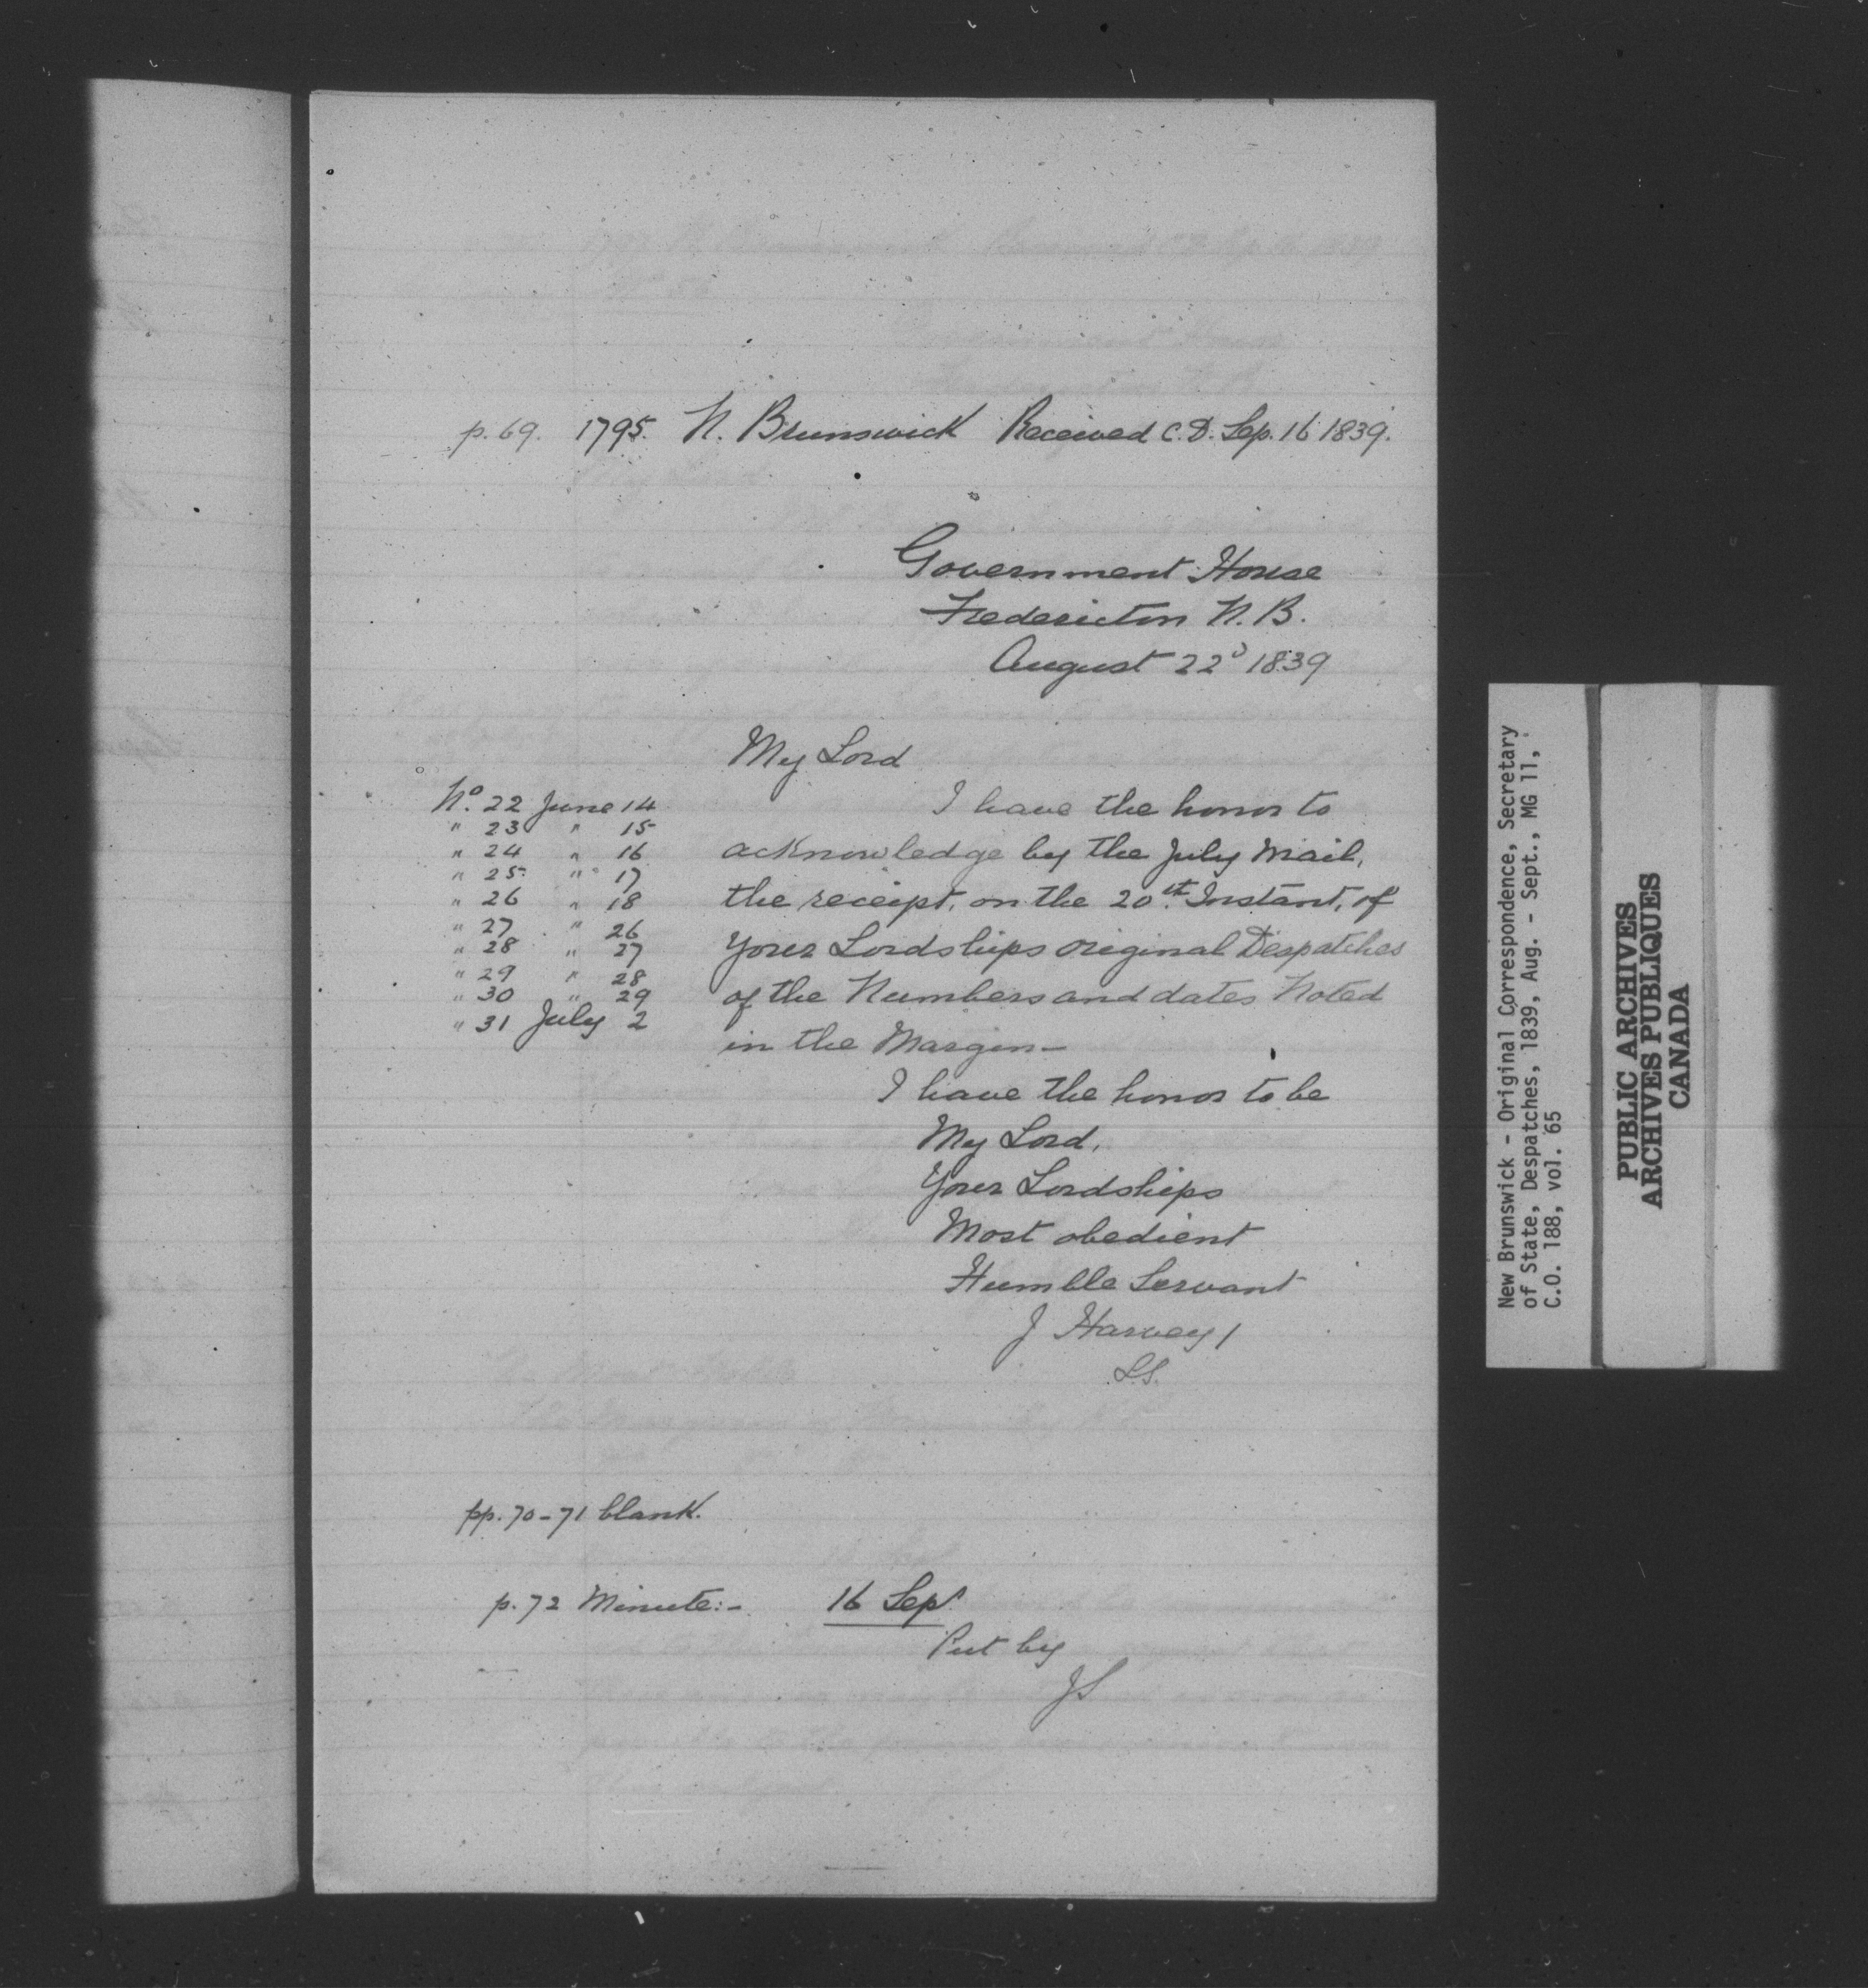 p. 69. 1795. N. Brunswick Received C.D. Sep. 16 1839.
Government House
Fredericton N.B.
August 22d 1839
My Lord
No. 22 June 14
" 23 " 15
" 24 " 16
" 25 " 17
" 26 " 18
" 27 " 26
" 28 " 27
" 29 " 28
" 30 " 29
" 31 July 2
I have the honor to
acknowledge by the July Mail,
the receipt, on the 20th. Instant, of
Your Lordships original Despatches
of the Numbers and dates Noted
in the Margin—
I have the honor to be
My Lord,
Your Lordships
Most obedient
Humble Servant
J Harvey /
LS.
pp. 70-71 blank.
p. 72 Minute:-
16 Sept
Put by
JS
New Brunswick - Original Correspondence, Secretary
of State, Despatches, 1839, Aug. - Sept., MG 11,
C.O. 188, vol. 65
PUBLIC ARCHIVES
ARCHIVES PUBLIQUES
CANADA